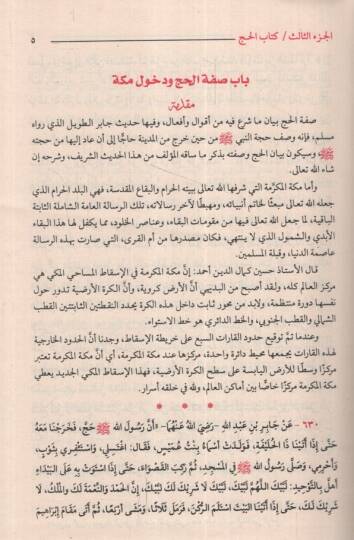 الجزء الثالث / كتاب الحج
٥
باب صفة الحج ودخول مكة
مقدمة
صفة الحج بيان ما شرع فيه من أقوال وأفعال، وفيها حديث جابر الطويل الذي رواه
مسلم، فإنه وصف حجة النبي ﷺ من حين خرج من المدينة حاجًّا إلى أن عاد إليها من حجته
ﷺ، وسيكون بيان الحج وصفته بذكر ما ساقه المؤلف من هذا الحديث الشريف، وشرحه إن
شاء الله تعالى.
وأما مكة المكرَّمة التي شرفها الله تعالى ببيته الحرام والبقاع المقدسة، فهي البلد الحرام الذي
جعله الله تعالى مبعثًا لخاتم أنبيائه، ومهبطًا لآخر رسالاته، تلك الرسالة العامة الشاملة الثابتة
الباقية، لما جعل الله تعالى فيها من مقومات البقاء، وعناصر الخلود، مما يكفل لها هذا البقاء
الأبدي والشمول الذي لا ينتهي، فكان مصدرها من أم القرى، التي صارت بهذه الرسالة
عاصمة الدنيا، وقبلة المسلمين.
قال الأستاذ حسين كمال الدين أحمد: إنَّ مكة المكرمة في الإسقاط المساحي المكي هي
مركز العالم كله، ولقد أصبح من البديهي أنَّ الأرض كروية، وأنَّ الكرة الأرضية تدور حول
نفسها دورة منتظمة، ولابد من محور ثابت داخل هذه الكرة يحدد النقطتين الثابتتين القطب
الشمالي والقطب الجنوبي، والخط الدائري هو خط الاستواء.
وعندما تمَّ توقيع حدود القارات السبع على خريطة الإسقاط، وجدنا أنَّ الحدود الخارجية
لهذه القارات يجمعها محيط دائرة واحدة، مركزها عند مكة المكرمة، أي أنَّ مكة المكرمة تعتبر
مركزًا وسطًا للأرض اليابسة على سطح الكرة الأرضية، فهذا الإسقاط المكي الجديد يعطي
مكة المكرمة مركزًا خاصًّا بين أماكن العالم، ولله في خلقه أسرار.
٦٣٠- عَنْ جَابِرِ بْنِ عَبْدِ اللهِ -رَضِيَ اللهُ عَنْهُمَا- «أَنَّ رَسُولَ اللهِ ﷺ حَجَّ، فَخَرَجْنَا مَعَهُ
حَتَّى إِذَا أَتَيْنَا ذَا الحُلَيْفَةِ، فَوَلَدَتْ أَسْمَاءُ بِنْتُ عُمَيْسٍ، فَقَالَ: اغْتَسِلِي، وَاسْتَثْفِرِي بِثَوْبٍ،
وَأَحْرِمِي، وَصَلَّى رَسُولُ اللهِ ﷺ فِي المَسْجِدِ، ثُمَّ رَكِبَ القَصْوَاءَ، حَتَّى إِذَا اسْتَوَتْ بِهِ عَلَى البَيْدَاءِ
أَهَلَّ بِالتَّوْحِيدِ: لَبَّيْكَ اللَّهُمَّ لَبَّيْكَ، لَبَّيْكَ لَا شَرِيكَ لَكَ لَبَّيْكَ، إِنَّ الحَمْدَ وَالنِّعْمَةَ لَكَ وَالمُلْكَ، لَا
شَرِيكَ لَكَ، حَتَّى إِذَا أَتَيْنَا البَيْتَ اسْتَلَمَ الرُّكْنَ، فَرَمَلَ ثَلَاثًا، وَمَشَى أَرْبَعًا، ثُمَّ أَتَى مَقَامَ إِبْرَاهِيمَ